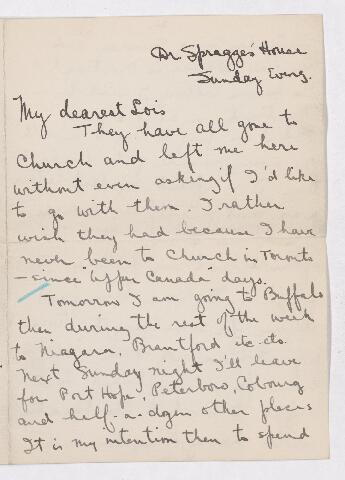 Dr. Spragge's House
Sunday Eveng.
My dearest Lois
They have all gone to
Church and left me here
without even asking if I'd like
to go with them. I rather
wish they had because I have
never been to Church in Toronto
- since "Upper Canada" days.
Tomorrow I am going to Buffalo
then during the rest of the week
to Niagara, Brantford etc. etc.
Next Sunday night I'll leave
for Port Hope, Peterboro, Cobourg
and half-a-dozen other places
It is my intention then to spend